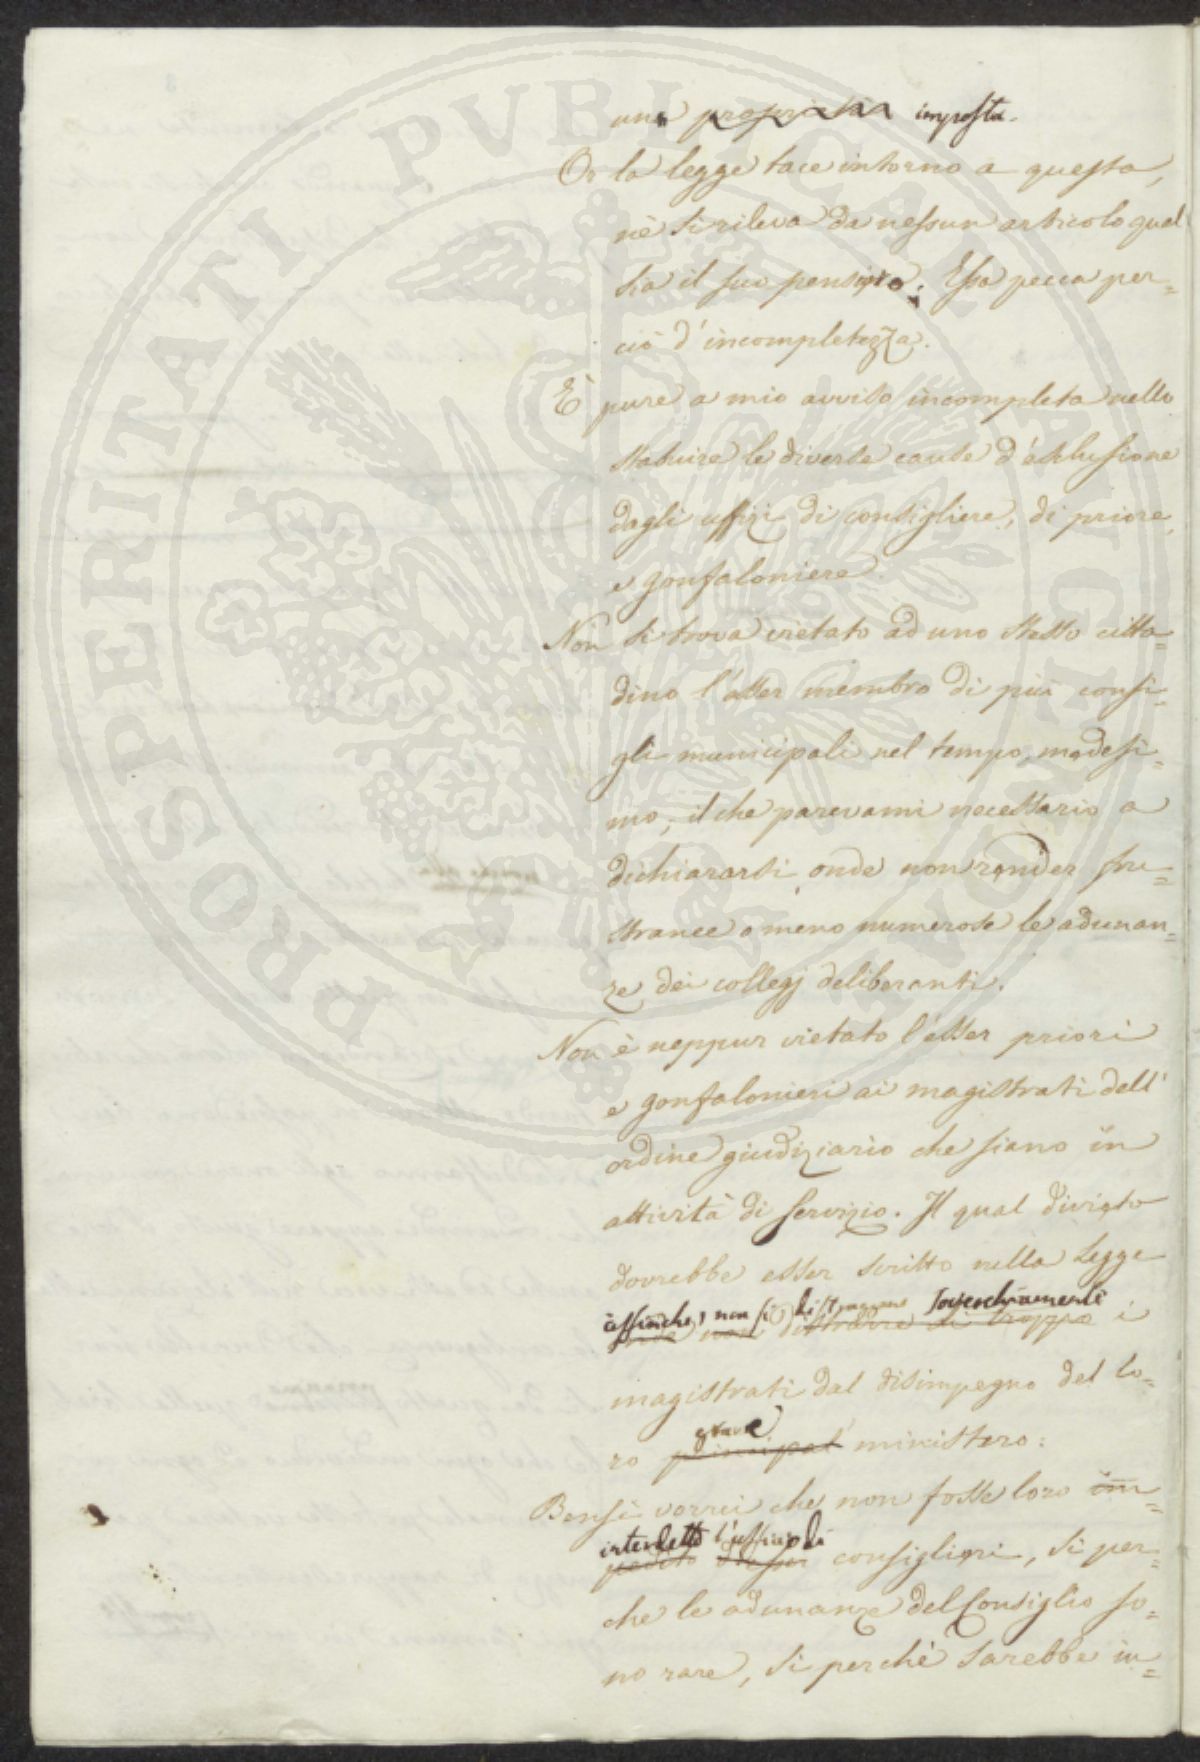 una proprietà imposta.
Or la legge tace intorno a questa,
nè si rileva da nessun articolo qual
sia il suo pensiero. Essa pecca per=
ciò d'incompletezza.
È pure a mio avviso incompleta nello
statuire le diverse cause d'esclusione
dagli uffizi di consigliere, di priore,
e gonfaloniere.
Non si trova vietato ad uno stesso citta=
dino l'esser membro di più consi=
gli municipali nel tempo medesi=
mo, il che parevami necessario a
dichiararsi onde non render fru=
stranee o meno numerose le adunan=
ze dei collegj deliberanti.
Non è neppur vietato l'esser priori
e gonfalonieri ai magistrati dell'
ordine giudiziario che siano in
attività di servizio. Il qual divieto
dovrebbe esser scritto nella Legge
affinchè non si distraggano soverchiamente
onde non distrarre di troppo i
magistrati dal disimpegno del lo=
grave
ro principal ministero:
Bensì vorrei che non fosse loro im=
interdetto l'ufficio di
pedito consiglieri, sì per=
che le adunanze del Consiglio so=
no rare, sì perchè sarebbe in=
PROSPERITATI PVBLICAE AVGENDAE